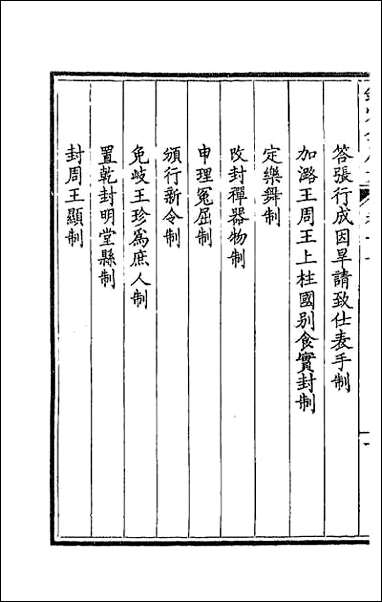 答張行成因旱請致仕表手制
加潞王周王上柱國别食實封制
定樂舞制
改封禪器物制
申理冤屈制
頒行新令制
免岐王珍為庶人制
置乾封明堂縣制
封周王顯制